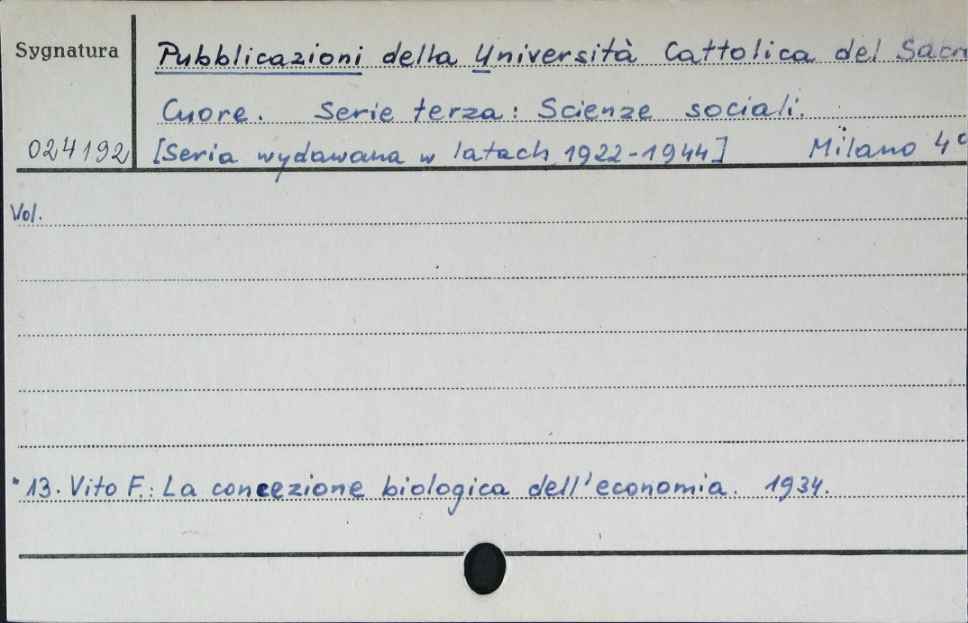 Sygnatura
Pubblicazioni della Università Cattolica del Sacro
Cuore. Serie terza: Scienze sociali.
024192 [Seria wydawana w latach 1922-1944] Milano 4°
Vol.
13. Vito F.: La concezione biologica dell'economia. 1934.